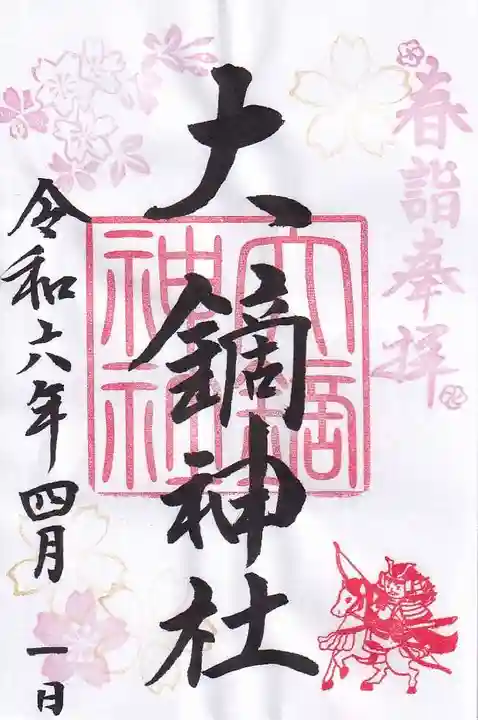 春詣奉拝
大鏑神社
大鏑神社
令和六年四月一日